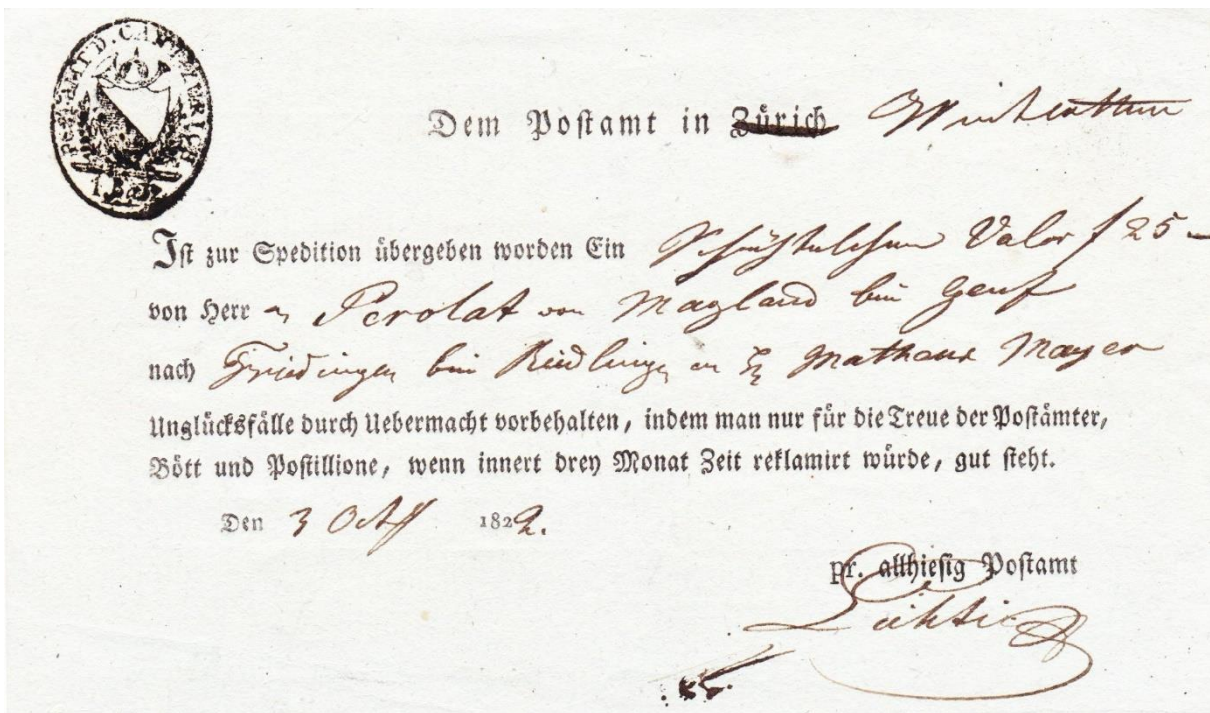 POSTAMT D. CANT. ZÜRICH
1 Batz.
Dem Postamt in Zürich Winterthur
Ist zur Spedition übergeben worden Ein Valor f 25 –
von Herr Perolat von Magland bei Genf
nach Friedingen bei Riedlingen an Mathaus Mayer
Unglücksfälle durch Uebermacht vorbehalten, indem man nur für die Treue der Postämter,
Bött und Postillione, wenn innert drey Monat Zeit reklamirt würde, gut steht.
Den 3 Oct 1822.
pr. allhiesig Postamt